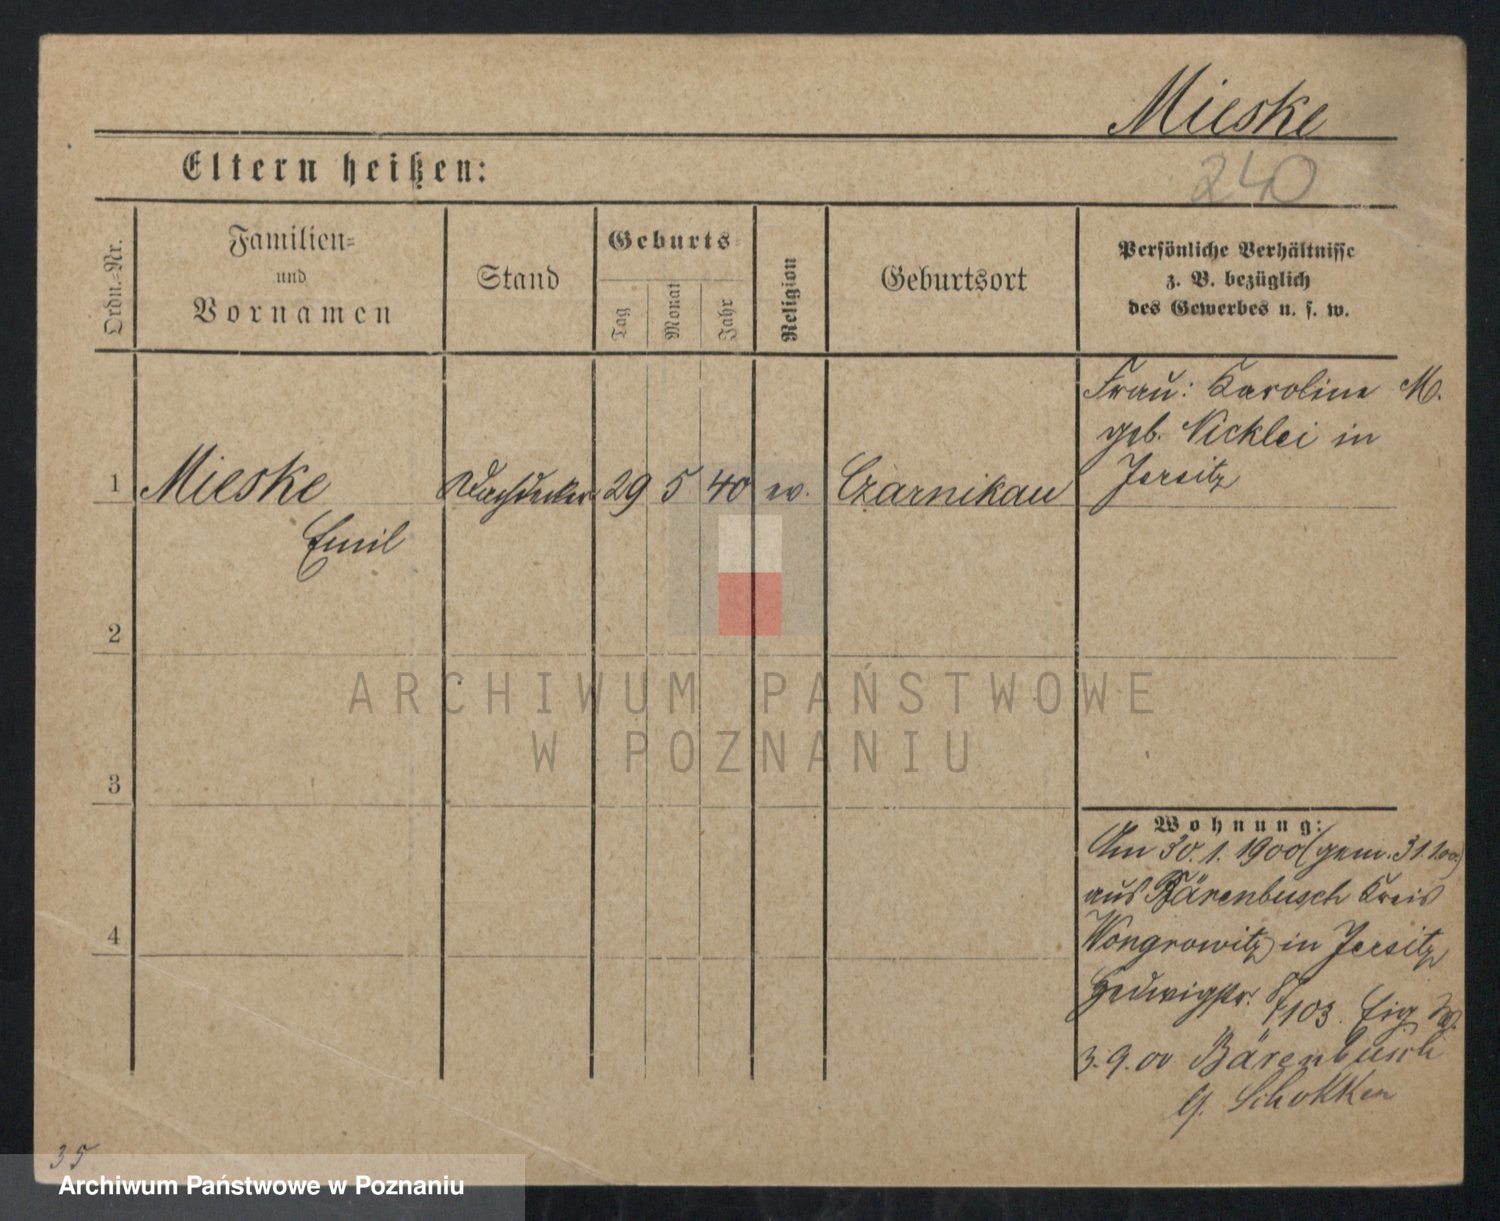 Mieske
Eltern heißen:
240
Ordn.-Nr.
Familien-
und
Vornamen
Stand
Geburts-
Tag
Monat
Jahr
Religion
Geburtsort
Persönliche Verhältnisse
z. B. bezüglich
des Gewerbes u. s. w.
Frau: Karoline M.
geb. Nicklei in
Jersitz
1 Mieske Dachdecker 29 5 40 ev. Czarnikau
Emil
2
ARCHIWUM PAŃSTWOWE
W POZNANIU
3
Wohnung:
Am 30.1.1900 (gem. 31.1.00)
aus Bärenbusch Kreis
4
Wongrowitz in Jersitz
Hedwigstr. 8/103. Eig. W.
3.9.00 Bärenbusch
b. Schokken
35
Archiwum Państwowe w Poznaniu